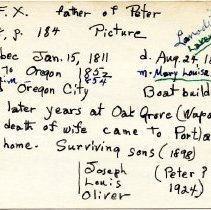 F. X. father of Peter
p. 184 Picture
bec Jan. 15, 1811 d. Aug. 24, 18
To Oregon 1852 m. Mary Louise
Oregon City 1854 Boat build
later years at Oak Grove (Wapa
death of wife came to Portla
home. Surviving sons (1898)
Joseph (Peter?
Louis 1924)
Oliver